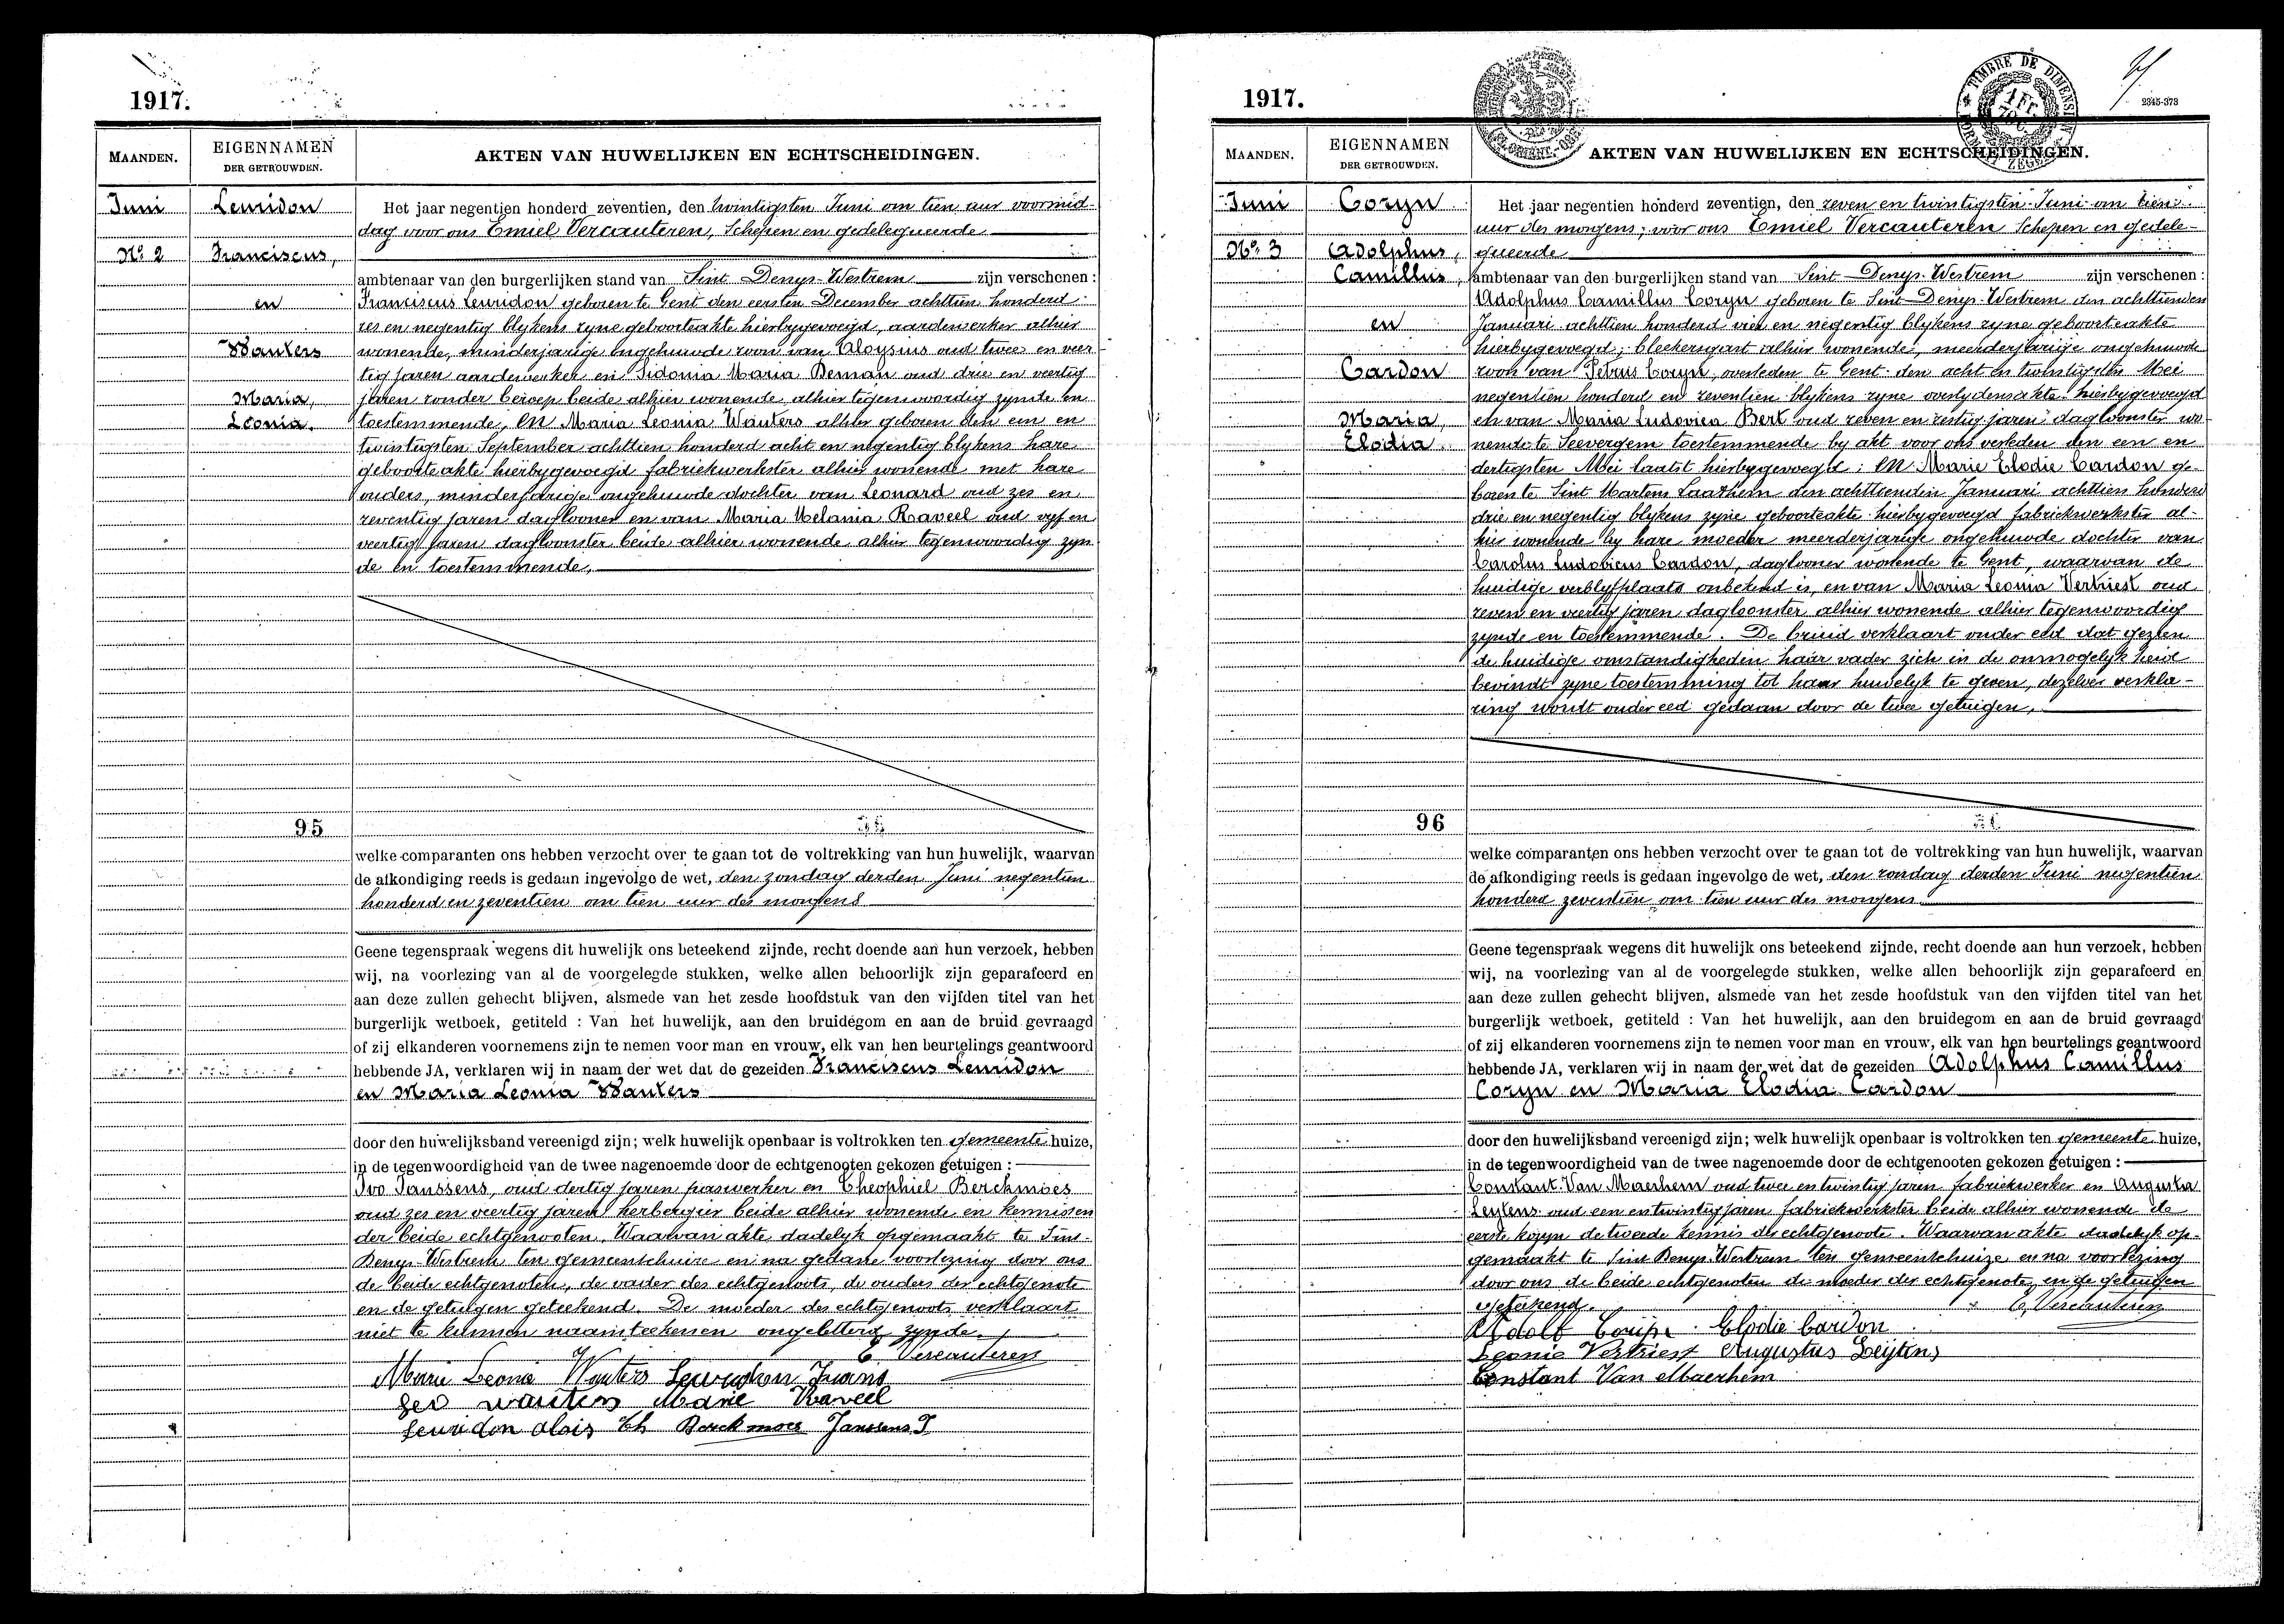 1917.
MAANDEN.
EIGENNAMEN
DER GETROUWDEN.
AKTEN VAN HUWELIJKEN EN ECHTSCHEIDINGEN.
Juni
Leuridon
No 2
Franciscus,
en
Wauters
Maria,
Leonia.
Het jaar negentien honderd zeventien, den twintigsten Juni om tien uur voormid-
dag voor ons Emiel Vercauteren, Schepen en gedelegueerde
ambtenaar van den burgerlijken stand van Sint Denys-Westrem zijn verschenen :
Franciscus Leuridon geboren te Gent den eersten December achttien honderd
zes en negentig blykens zyne geboorteakte hierbygevoegd, aardewerker alhier
wonende, minderjarige ongehuwde zoon van Aloysius oud twee en veer-
tig jaren aardewerker en Sidonia Maria Deman oud drie en veertig
jaren zonder beroep beide alhier wonende alhier tegenwoordig zynde en
toestemmende, en Maria Leonia Wauters alhier geboren den een en
twintigsten September achttien honderd acht en negentig blykens hare
geboorteakte hierbygevoegd fabriekwerkster alhier wonende met hare
ouders, minderjarige ongehuwde dochter van Leonard oud zes en
zeventig jaren daglooner en van Maria Melania Raveel oud vyf en
veertig jaren dagloonster beide alhier wonende alhier tegenwoordig zyn
de en toestemmende,
95
welke comparanten ons hebben verzocht over te gaan tot de voltrekking van hun huwelijk, waarvan
de afkondiging reeds is gedaan ingevolge de wet, den zondag derden Juni negentien
honderd en zeventien om tien uur des morgens
Geene tegenspraak wegens dit huwelijk ons beteekend zijnde, recht doende aan hun verzoek, hebben
wij, na voorlezing van al de voorgelegde stukken, welke allen behoorlijk zijn geparafeerd en
aan deze zullen gehecht blijven, alsmede van het zesde hoofdstuk van den vijfden titel van het
burgerlijk wetboek, getiteld : Van het huwelijk, aan den bruidegom en aan de bruid gevraagd
of zij elkanderen voornemens zijn te nemen voor man en vrouw, elk van hen beurtelings geantwoord
hebbende JA, verklaren wij in naam der wet dat de gezeiden Franciscus Leuridon
en Maria Leonia Wauters
door den huwelijksband vereenigd zijn; welk huwelijk openbaar is voltrokken ten gemeente huize,
in de tegenwoordigheid van de twee nagenoemde door de echtgenooten gekozen getuigen :
Ivo Janssens, oud dertig jaren paswerker en Theophiel Berckmoes
oud zes en veertig jaren herbergier beide alhier wonende en kennissen
der beide echtgenooten. Waarvan akte dadelyk opgemaakt te Sint-
Denys-Westrem ten gemeentehuize en na gedane voorlezing door ons
de beide echtgenoten, de vader des echtgenoots, de ouders der echtgenote
en de getuigen geteekend. De moeder des echtgenoots verklaart
niet te kunnen naamteekenen ongeletterd zynde.
E Vercauteren
Marie Leonie Wauters Leuridon Frans
Leo wauters Marie Raveel
Leuridon Alois Th Berckmoes Janssens I
1917.
TIMBRE DE DIMENSION
1 FR.
2345-373
MAANDEN.
EIGENNAMEN
DER GETROUWDEN.
AKTEN VAN HUWELIJKEN EN ECHTSCHEIDINGEN.
Juni
Coryn
No 3
Adolphus,
Camillus,
en
Cardon
Maria,
Elodia.
Het jaar negentien honderd zeventien, den zeven en twintigsten Juni om tien
uur des morgens, voor ons Emiel Vercauteren Schepen en gedele-
gueerde
ambtenaar van den burgerlijken stand van Sint Denys-Westrem zijn verschenen :
Adolphus Camillus Coryn geboren te Sint-Denys-Westrem den achttienden
Januari achttien honderd vier en negentig blykens zyne geboorteakte
hierbygevoegd, bleekersgast alhier wonende, meerderjarige ongehuwde
zoon van Petrus Coryn, overleden te Gent den acht en twintigsten Mei
negentien honderd en zeventien blykens zyne overlydensakte hierbygevoegd
en van Maria Ludovica Bert oud zeven en zestig jaren dagloonster wo-
nende te Seevergem toestemmende by akt voor ons verleden den een en
dertigsten Mei laatst hierbygevoegd; en Marie Elodie Cardon ge-
boren te Sint Martens Laathem den achttienden Januari achttien honderd
drie en negentig blykens zyne geboorteakte hierbygevoegd fabriekwerkster al-
hier wonende by hare moeder meerderjarige ongehuwde dochter van
Carolus Ludovicus Cardon, daglooner wonende te Gent, waarvan de
huidige verblyfplaats onbekend is, en van Maria Leonia Vertriest oud
zeven en veertig jaren dagloonster alhier wonende alhier tegenwoordig
zynde en toestemmende. De bruid verklaart onder eed dat gezien
de huidige omstandigheden haar vader zich in de onmogelyk heid
bevindt zyne toestemming tot haar huwelyk te geven, dezelve verkla-
ring wordt onder eed gedaan door de twee getuigen,
96
welke comparanten ons hebben verzocht over te gaan tot de voltrekking van hun huwelijk, waarvan
de afkondiging reeds is gedaan ingevolge de wet, den zondag derden Juni negentien
honderd zeventien om tien uur des morgens
Geene tegenspraak wegens dit huwelijk ons beteekend zijnde, recht doende aan hun verzoek, hebben
wij, na voorlezing van al de voorgelegde stukken, welke allen behoorlijk zijn geparafeerd en
aan deze zullen gehecht blijven, alsmede van het zesde hoofdstuk van den vijfden titel van het
burgerlijk wetboek, getiteld : Van het huwelijk, aan den bruidegom en aan de bruid gevraagd
of zij elkanderen voornemens zijn te nemen voor man en vrouw, elk van hen beurtelings geantwoord
hebbende JA, verklaren wij in naam der wet dat de gezeiden Adolphus Camillus
Coryn en Maria Elodia Cardon
door den huwelijksband vereenigd zijn; welk huwelijk openbaar is voltrokken ten gemeente huize,
in de tegenwoordigheid van de twee nagenoemde door de echtgenooten gekozen getuigen :
Constant Van Maerhem oud twee en twintig jaren fabriekwerker en Augusta
Leytens oud een en twintig jaren fabriekwerkster beide alhier wonende de
eerste kozyn de tweede kennis der echtgenoote. Waarvan akte dadelyk op-
gemaakt te Sint Denys-Westrem ten gemeentehuize en na voorlezing
door ons de beide echtgenoten de moeder der echtgenote, en de getuigen
geteekend.
E. Vercauteren
Adolf Elodie Cardon
Leonie Vertriest Augustus Leytens
Constant Van Maerhem